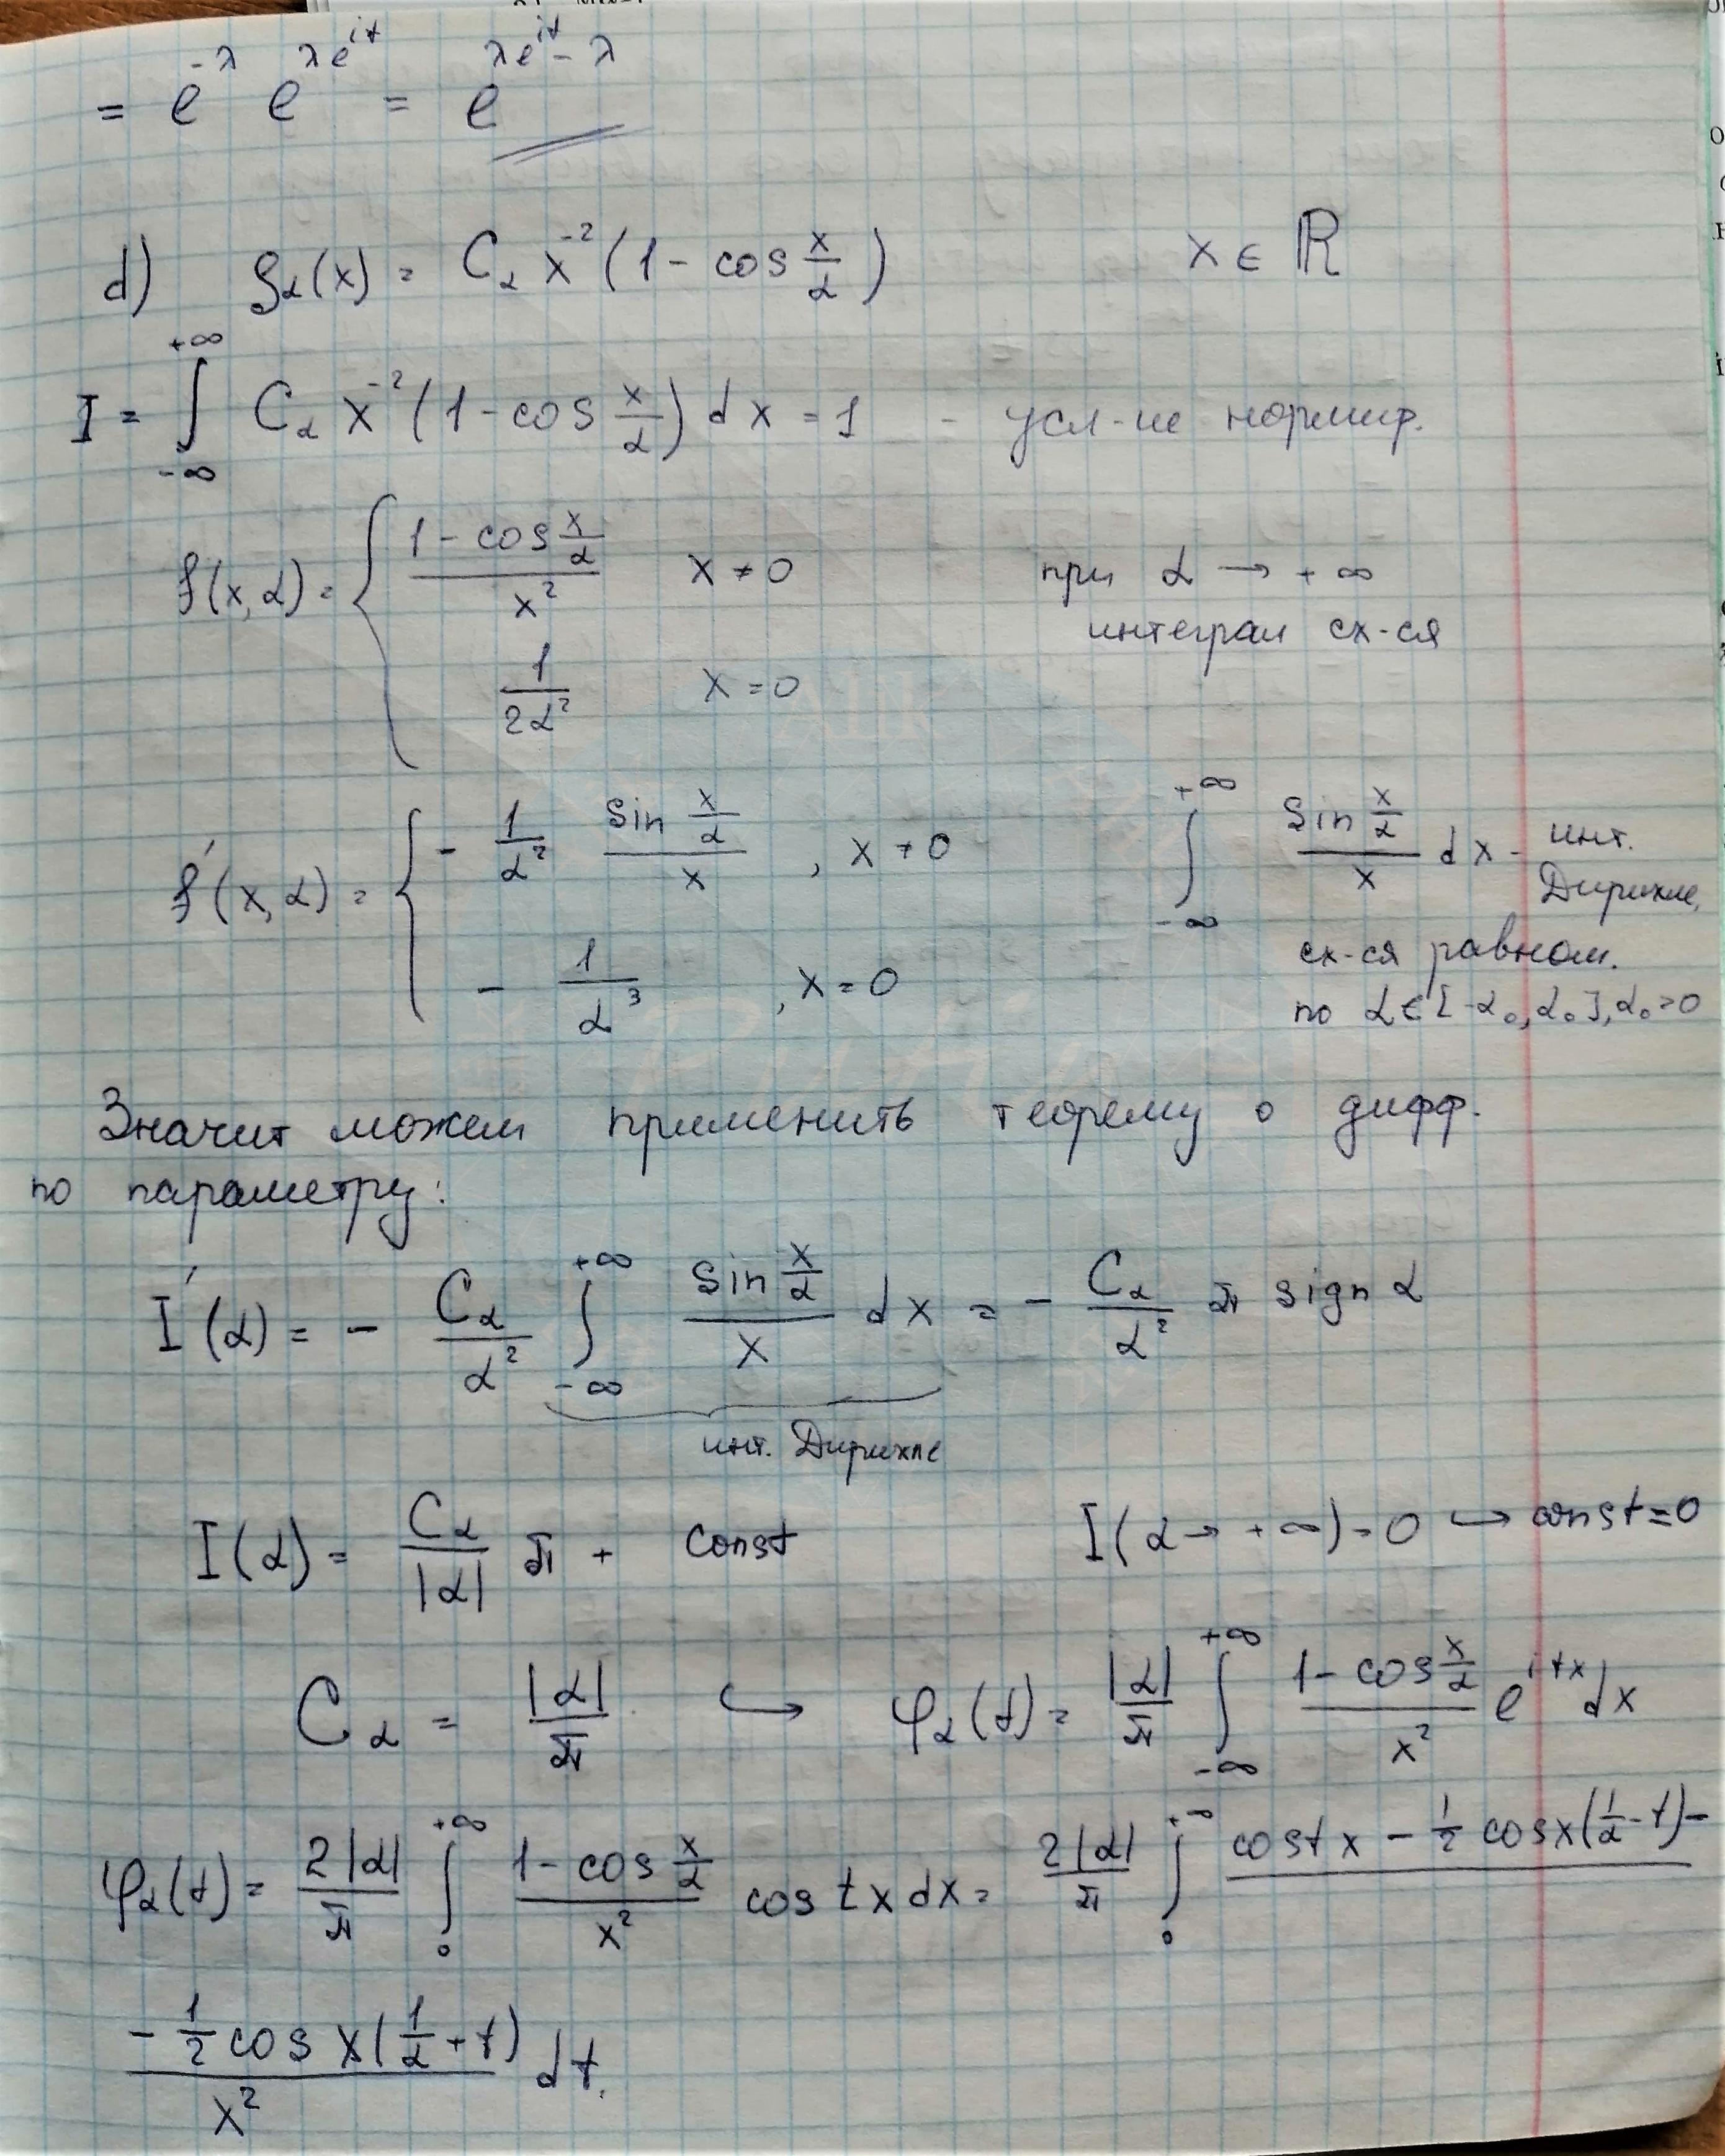 = e^{-λ} e^{λe^{it}} = e^{λe^{it} - λ}
d) ρ_α(x) = C_α x^{-2} (1 - cos x/α) x ∈ ℝ
I = ∫_{-∞}^{+∞} C_α x^{-2} (1 - cos x/α) dx = 1 - усл-ие нормир.
f(x,α) = { (1 - cos x/α)/x² x ≠ 0 при α → +∞
интеграл сх-ся
1/(2α²) x = 0
f'(x,α) = { - 1/α² (sin x/α)/x , x ≠ 0 ∫_{-∞}^{+∞} (sin x/α)/x dx - инт.
Дирихле,
- 1/α³ , x = 0 сх-ся равном.
по α ∈ [-α₀, α₀], α₀ > 0
Значит можем применить теорему о дифф.
по параметру:
I'(α) = - C_α/α² ∫_{-∞}^{+∞} (sin x/α)/x dx = - C_α/α² π sign α
инт. Дирихле
I(α) = C_α/|α| π + const I(α → +∞) = 0 ↪ const = 0
C_α = |α|/π ↪ φ_α(t) = |α|/π ∫_{-∞}^{+∞} (1 - cos x/α)/x² e^{itx} dx
φ_α(t) = 2|α|/π ∫_0^{+∞} (1 - cos x/α)/x² cos tx dx = 2|α|/π ∫_0^{+∞} cos tx - 1/2 cos x(1/α - t) -
(- 1/2 cos x(1/α + t))/x² dt.